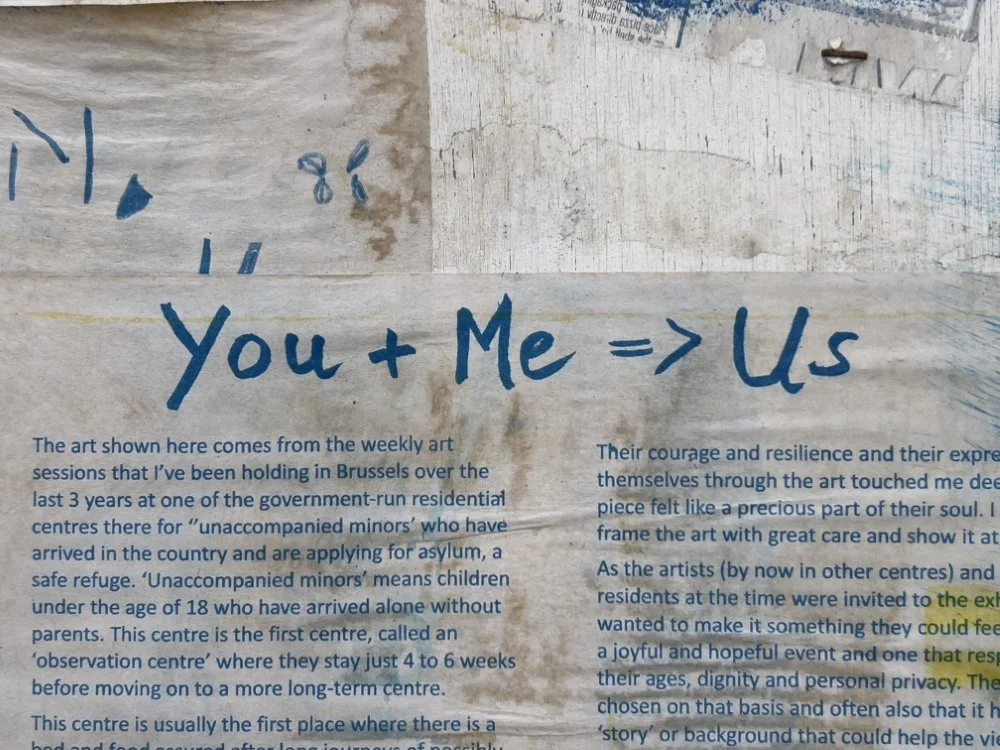 You + Me => Us
The art shown here comes from the weekly art
sessions that I've been holding in Brussels over the
last 3 years at one of the government-run residential
centres there for ‘'unaccompanied minors’ who have
arrived in the country and are applying for asylum, a
safe refuge. ‘Unaccompanied minors’ means children
under the age of 18 who have arrived alone without
parents. This centre is the first centre, called an
‘observation centre’ where they stay just 4 to 6 weeks
before moving on to a more long-term centre.
This centre is usually the first place where there is a
bed and food assured after long journeys of possibly
Their courage and resilience and their expre
themselves through the art touched me dee
piece felt like a precious part of their soul. I
frame the art with great care and show it at
As the artists (by now in other centres) and
residents at the time were invited to the exh
wanted to make it something they could fee
a joyful and hopeful event and one that resp
their ages, dignity and personal privacy. The
chosen on that basis and often also that it h
‘story’ or background that could help the vie